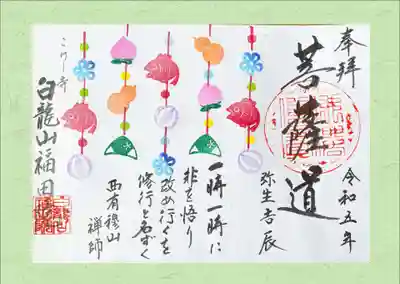 奉拝
菩薩道
令和五年
弥生吉辰
一時一時に
非を悟り
改め行くを
修行と名ずく
西有穆山
禅師
こけし寺
白龍山福田寺